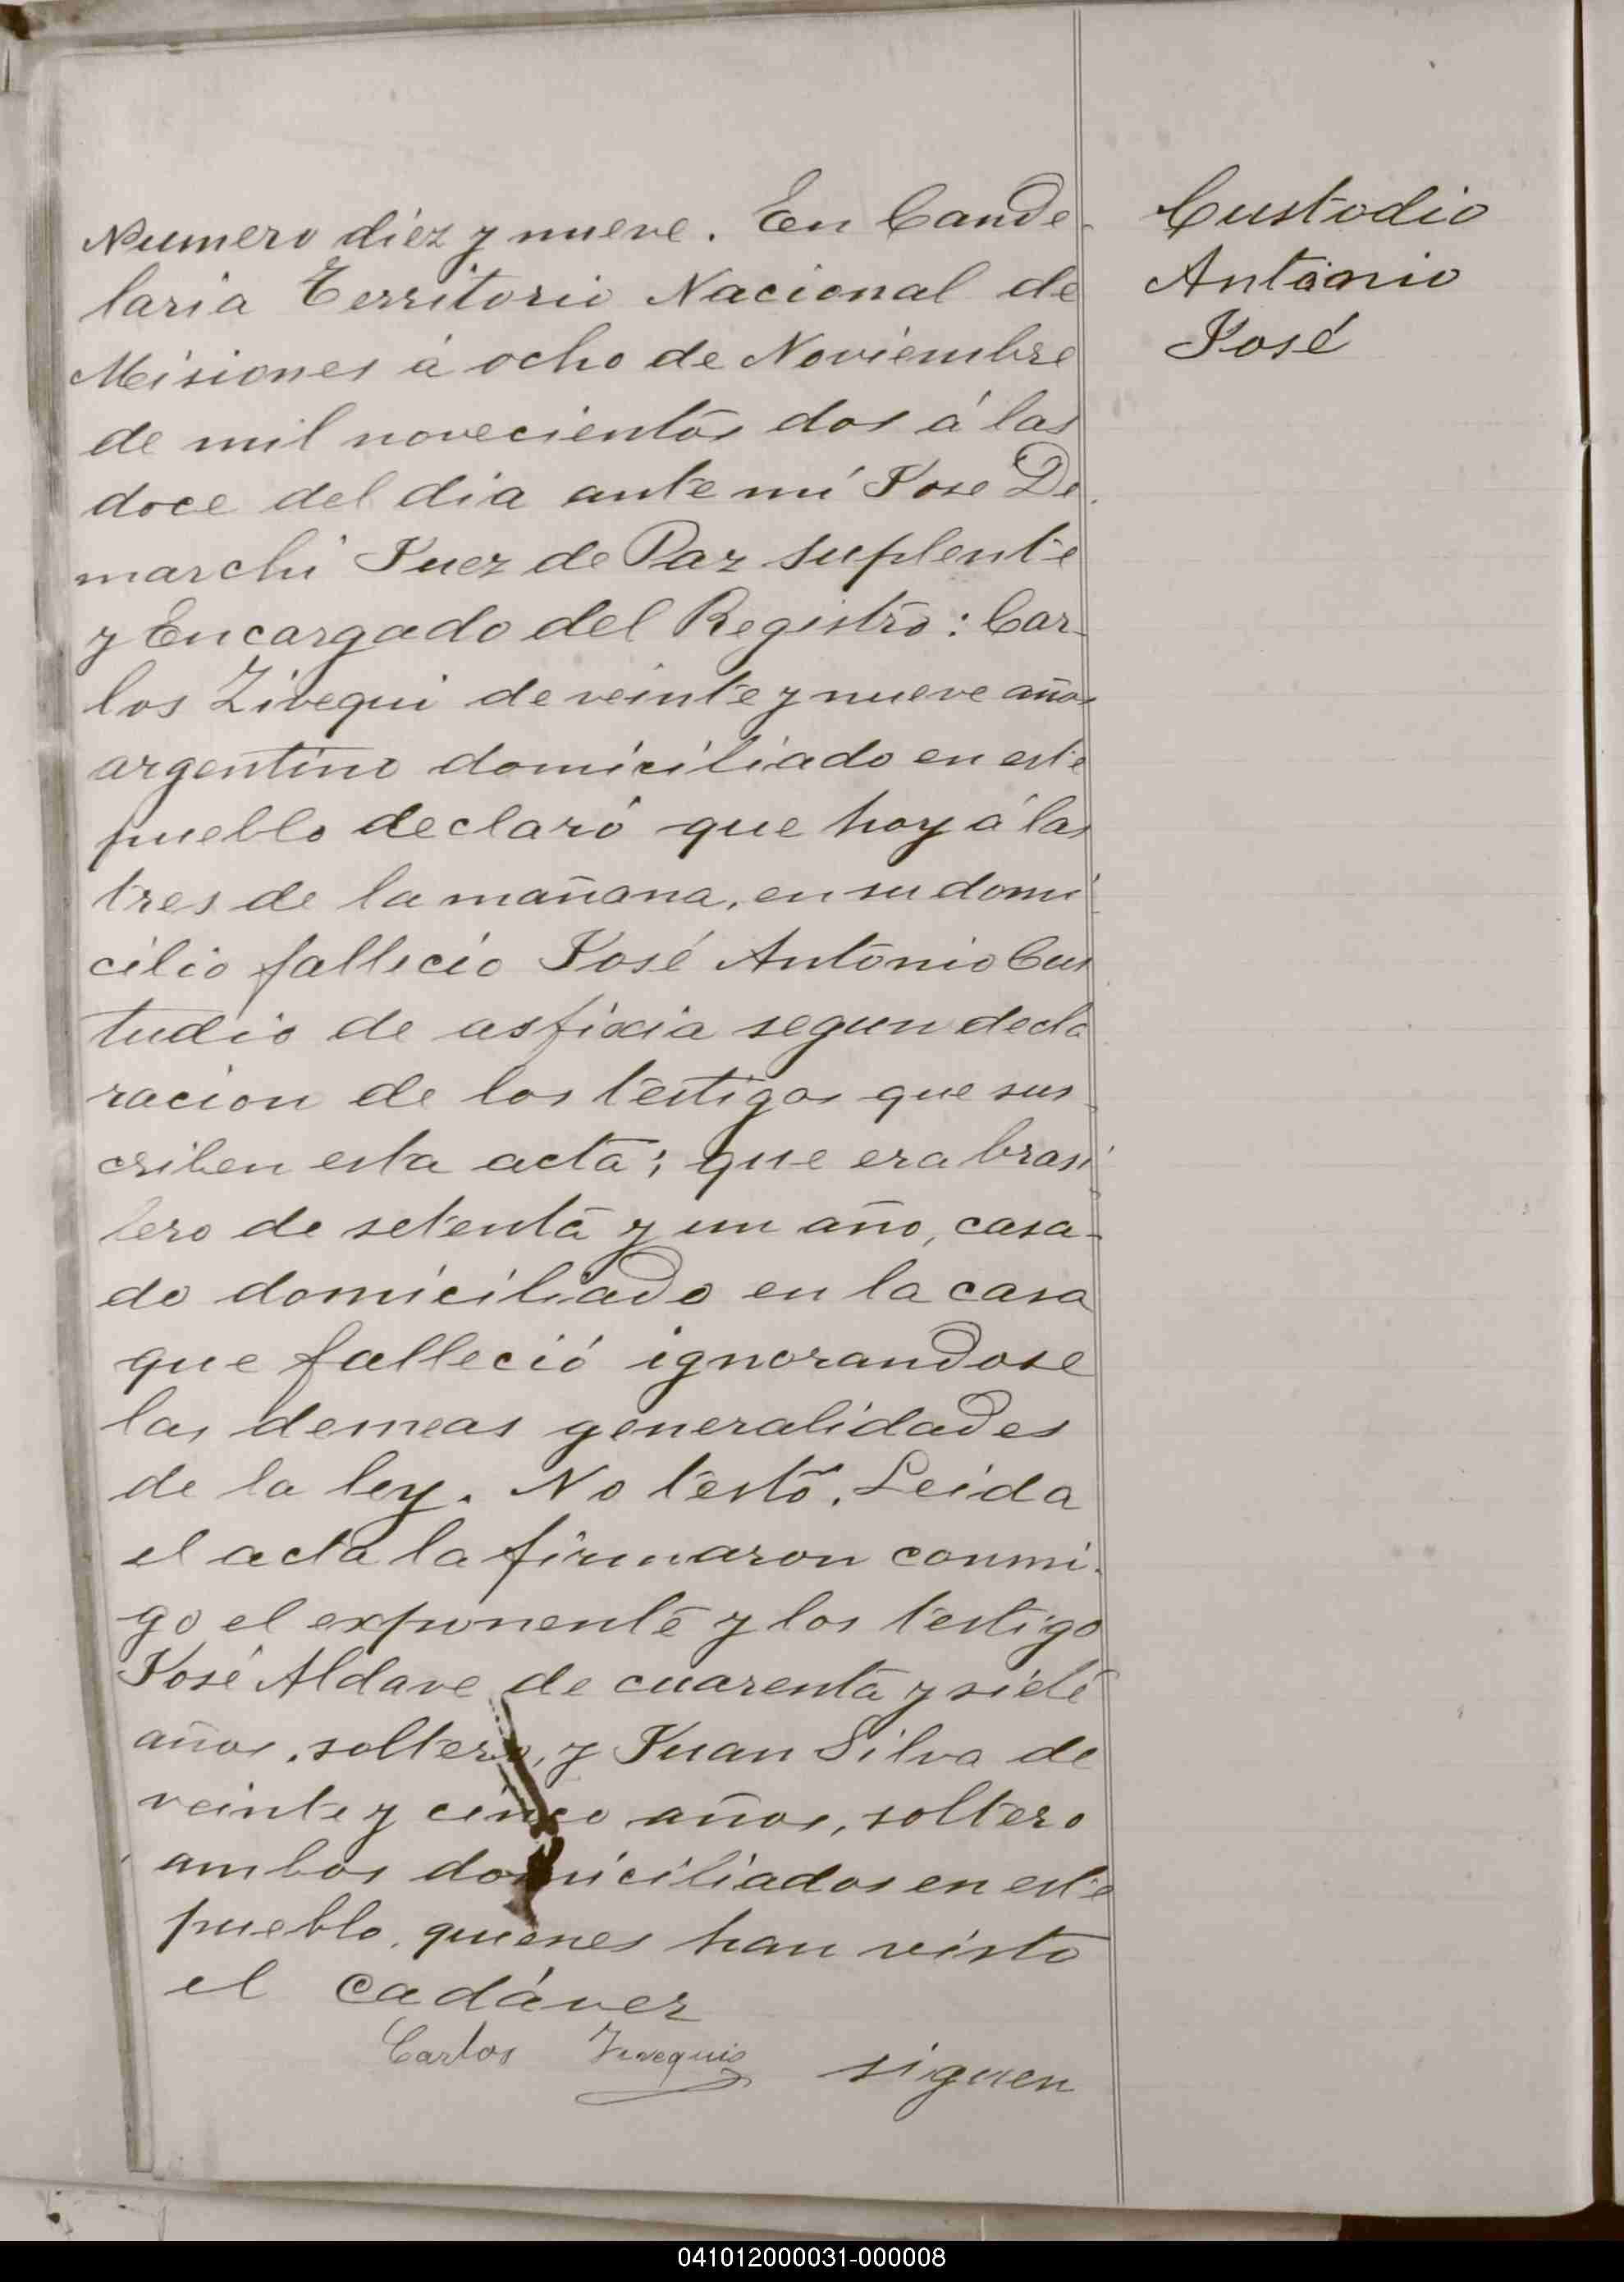 Numero diez y nueve. En Cande-
laria Territorio Nacional de
Misiones á ocho de Noviembre
de mil novecientos dos á las
doce del dia ante mi Jose De-
marchi Juez de Paz suplente
y Encargado del Registro: Car-
los Zivequi de veinte y nueve años
argentino domiciliado en este
pueblo declaró que hoy á las
tres de la mañana, en su domi-
cilio fallecio José Antonio Cus
tudio de asfixia segun decla
racion de los testigos que sus-
criben esta acta; que era brasi-
lero de setenta y un año, casa-
do domiciliado en la casa
que falleció ignorandose
las demeas generalidades
de la ley. No testó. Leida
el acta la firmaron conmi-
go el exponente y los testigo
José Aldave de cuarenta y siete
años, soltero, y Juan Silva de
veinte y cinco años, soltero
ambos domiciliados en este
pueblo, quienes han visto
el cadáver
Carlos siguen
Custodio
Antonio
José
041012000031-000008